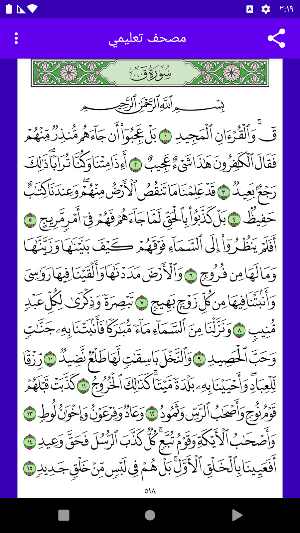 ٢:١٩
مصحف تعليمي
سُورَةُ ق
بِسْمِ ٱللَّهِ ٱلرَّحْمَٰنِ ٱلرَّحِيمِ
قٓ ۚ وَٱلْقُرْءَانِ ٱلْمَجِيدِ ١ بَلْ عَجِبُوٓا۟ أَن جَآءَهُم مُّنذِرٌ مِّنْهُمْ
فَقَالَ ٱلْكَٰفِرُونَ هَٰذَا شَىْءٌ عَجِيبٌ ٢ أَءِذَا مِتْنَا وَكُنَّا تُرَابًا ۖ ذَٰلِكَ
رَجْعٌۢ بَعِيدٌ ٣ قَدْ عَلِمْنَا مَا تَنقُصُ ٱلْأَرْضُ مِنْهُمْ ۖ وَعِندَنَا كِتَٰبٌ
حَفِيظٌۢ ٤ بَلْ كَذَّبُوا۟ بِٱلْحَقِّ لَمَّا جَآءَهُمْ فَهُمْ فِىٓ أَمْرٍ مَّرِيجٍ ٥
أَفَلَمْ يَنظُرُوٓا۟ إِلَى ٱلسَّمَآءِ فَوْقَهُمْ كَيْفَ بَنَيْنَٰهَا وَزَيَّنَّٰهَا
وَمَا لَهَا مِن فُرُوجٍ ٦ وَٱلْأَرْضَ مَدَدْنَٰهَا وَأَلْقَيْنَا فِيهَا رَوَٰسِىَ
وَأَنۢبَتْنَا فِيهَا مِن كُلِّ زَوْجٍۭ بَهِيجٍ ٧ تَبْصِرَةً وَذِكْرَىٰ لِكُلِّ عَبْدٍ
مُّنِيبٍ ٨ وَنَزَّلْنَا مِنَ ٱلسَّمَآءِ مَآءً مُّبَٰرَكًا فَأَنۢبَتْنَا بِهِۦ جَنَّٰتٍ
وَحَبَّ ٱلْحَصِيدِ ٩ وَٱلنَّخْلَ بَاسِقَٰتٍ لَّهَا طَلْعٌ نَّضِيدٌ ١٠ رِّزْقًا
لِّلْعِبَادِ ۖ وَأَحْيَيْنَا بِهِۦ بَلْدَةً مَّيْتًا ۚ كَذَٰلِكَ ٱلْخُرُوجُ ١١ كَذَّبَتْ قَبْلَهُمْ
قَوْمُ نُوحٍ وَأَصْحَٰبُ ٱلرَّسِّ وَثَمُودُ ١٢ وَعَادٌ وَفِرْعَوْنُ وَإِخْوَٰنُ لُوطٍ ١٣
وَأَصْحَٰبُ ٱلْأَيْكَةِ وَقَوْمُ تُبَّعٍ ۚ كُلٌّ كَذَّبَ ٱلرُّسُلَ فَحَقَّ وَعِيدِ ١٤
أَفَعَيِينَا بِٱلْخَلْقِ ٱلْأَوَّلِ ۚ بَلْ هُمْ فِى لَبْسٍ مِّنْ خَلْقٍ جَدِيدٍ ١٥
٥١٨